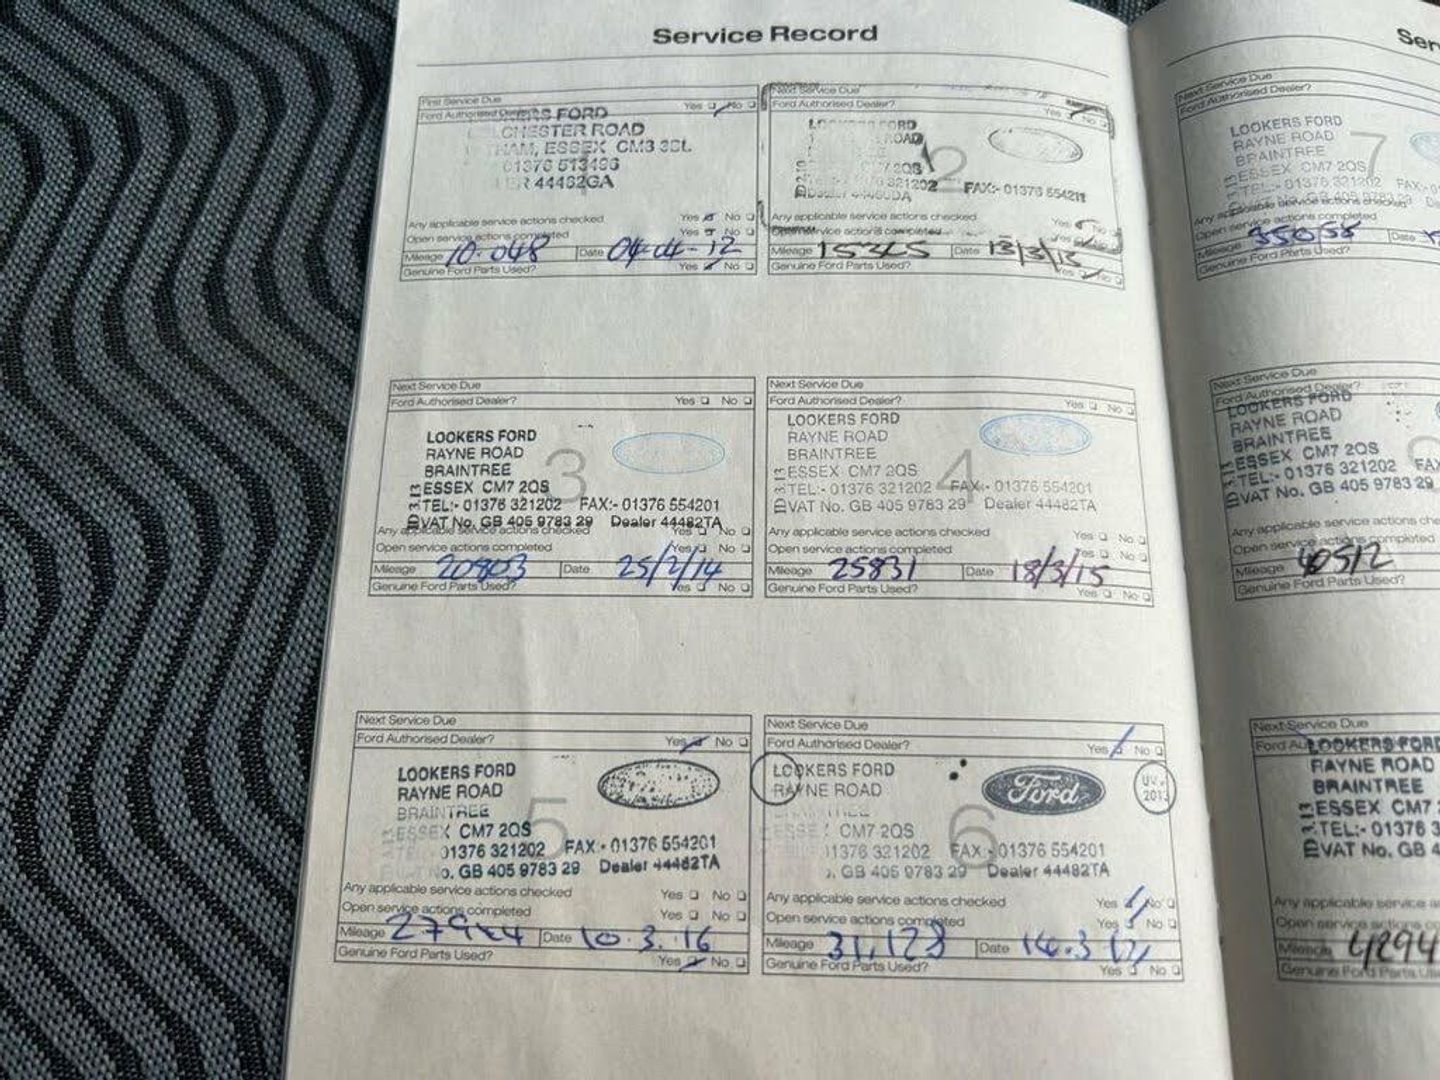 Service Record
First Service Due
Ford Authorised Dealer? Yes No
FORD
CHESTER ROAD
ESSEX CM3 3SL
01376 513496
44482GA
Any applicable service actions checked Yes No
Open service actions completed Yes No
Mileage 10.048 Date 04-04-12
Genuine Ford Parts Used? Yes No
Next Service Due
Ford Authorised Dealer? Yes No
LOOKERS FORD
ROAD
2
CM7 2QS
321202 FAX:- 01376 554211
Any applicable service actions checked Yes
Open service actions completed Yes
Mileage Date
Genuine Ford Parts Used? Yes No
Next Service Due
Ford Authorised Dealer? Yes No
LOOKERS FORD
RAYNE ROAD
BRAINTREE
3
ESSEX CM7 2QS
TEL:- 01376 321202 FAX:- 01376 554201
VAT No. GB 405 9783 29 Dealer 44482TA
Any applicable service actions checked Yes No
Open service actions completed Yes No
Mileage 20903 Date 25/2/14
Genuine Ford Parts Used? Yes No
Next Service Due
Ford Authorised Dealer? Yes No
LOOKERS FORD
RAYNE ROAD
BRAINTREE
4
ESSEX CM7 2QS
TEL:- 01376 321202 FAX:- 01376 554201
VAT No. GB 405 9783 29 Dealer 44482TA
Any applicable service actions checked Yes No
Open service actions completed Yes No
Mileage 25831 Date 18/3/15
Genuine Ford Parts Used? Yes No
Next Service Due
Ford Authorised Dealer? Yes No
LOOKERS FORD
RAYNE ROAD
BRAINTREE
5
ESSEX CM7 2QS
01376 321202 FAX:- 01376 554201
o. GB 405 9783 29 Dealer 44482TA
Any applicable service actions checked Yes No
Open service actions completed Yes No
Mileage Date 10.3.16
Genuine Ford Parts Used? Yes No
Next Service Due
Ford Authorised Dealer? Yes No
LOOKERS FORD Ford
RAYNE ROAD 2013
6
CM7 2QS
1376 321202 FAX:- 01376 554201
. GB 405 9783 29 Dealer 44482TA
Any applicable service actions checked Yes No
Open service actions completed Yes No
Mileage 31,128 Date
Genuine Ford Parts Used? Yes No
Ser
Next Service Due
Ford Authorised Dealer?
LOOKERS FORD
RAYNE ROAD
BRAINTREE
7
ESSEX CM7 2QS
TEL:- 01376 321202 FAX:-
Any applicable service actions checked
Open service actions completed
Mileage Date
Genuine Ford Parts Used?
Next Service Due
Ford Authorised Dealer?
LOOKERS FORD
RAYNE ROAD
BRAINTREE
ESSEX CM7 2QS
TEL:- 01376 321202 FA
VAT No. GB 405 9783 29
Any applicable service actions che
Open service actions completed
Mileage 40512
Genuine Ford Parts Used?
Next Service Due
Ford Au
LOOKERS FORD
RAYNE ROAD
BRAINTREE
ESSEX CM7
TEL:- 01376 3
VAT No. GB 4
Any applicable service a
Open service actions co
Mileage 4294
Genuine Ford Parts Us